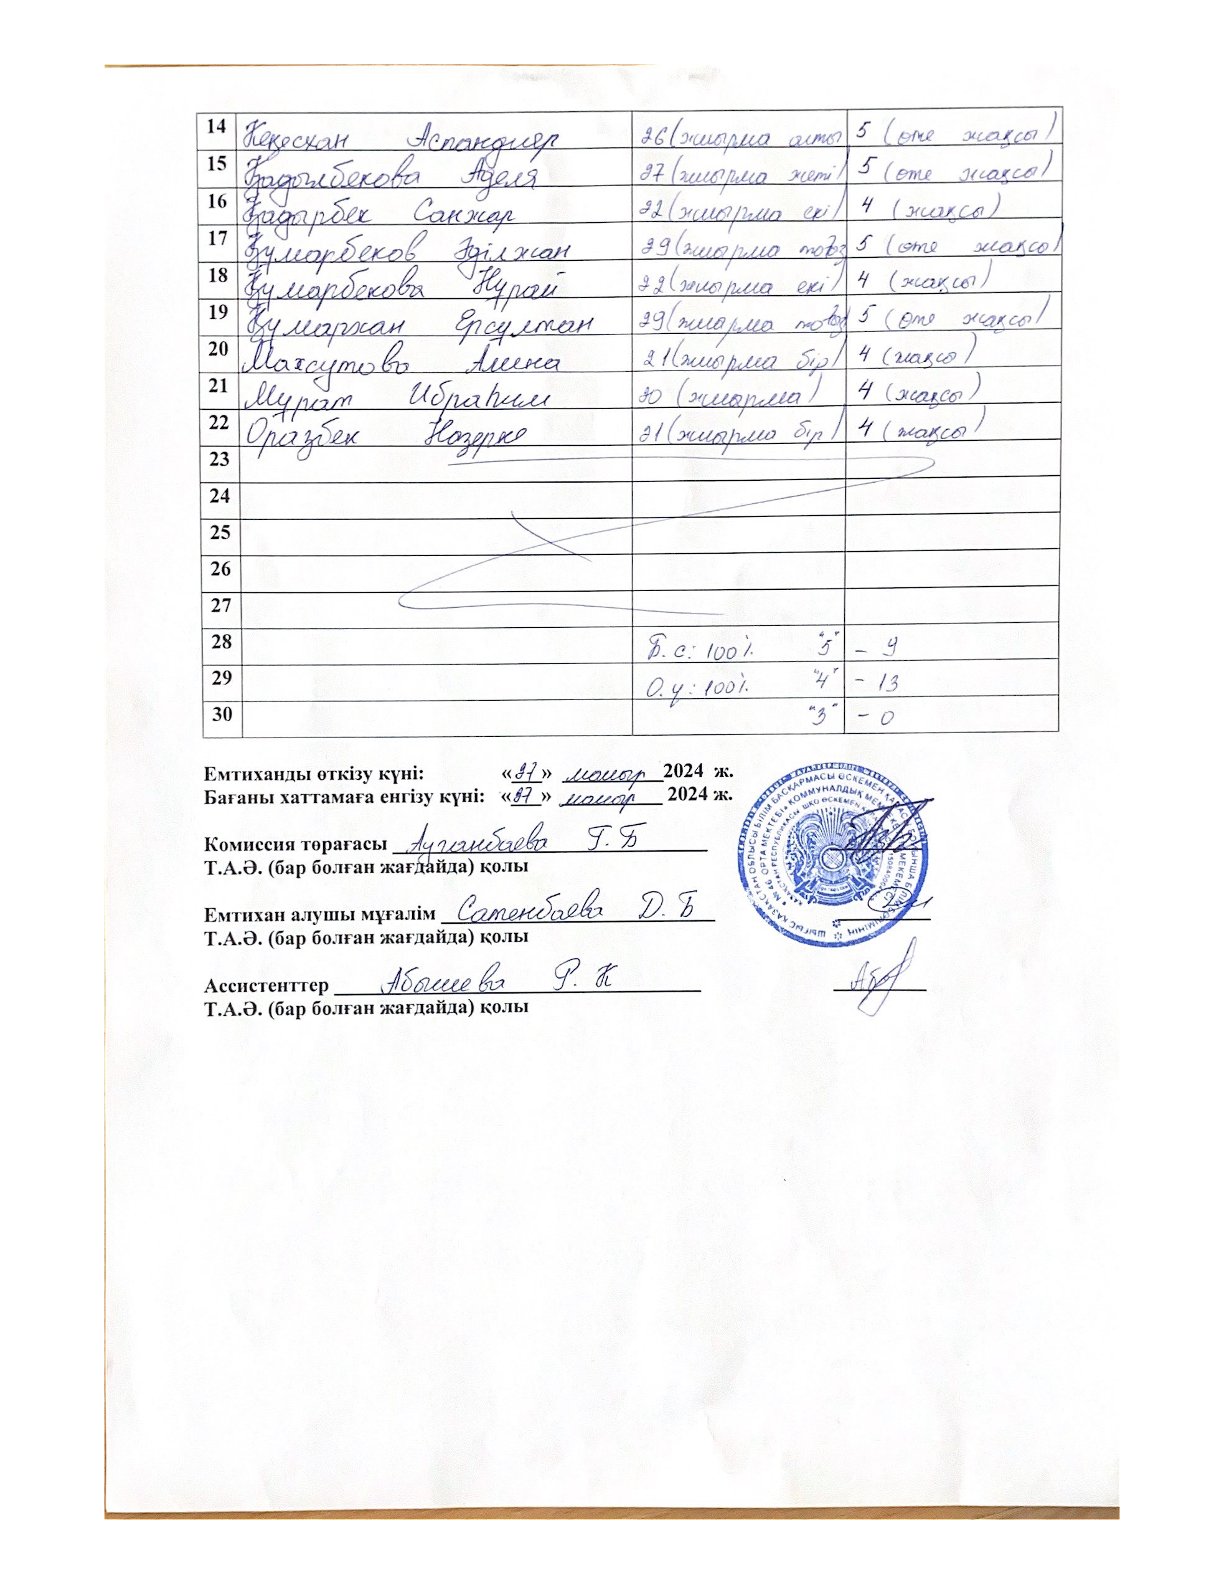 14 Кеңесхан Аспандияр 26 (жиырма алты 5 (өте жақсы)
15 Қадылбекова Аделя 27 (жиырма жеті) 5 (өте жақсы)
16 Қадырбек Санжар 22 (жиырма екі) 4 (жақсы)
17 Құмарбеков Әділжан 29 (жиырма тоғыз 5 (өте жақсы)
18 Құмарбекова Нұрай 22 (жиырма екі) 4 (жақсы)
19 Құмархан Ерсұлтан 29 (жиырма тоғыз) 5 (өте жақсы)
20 Махсутова Амина 21 (жиырма бір) 4 (жақсы)
21 Мұрат Ибраһим 20 (жиырма) 4 (жақсы)
22 Оразбек Назерке 21 (жиырма бір) 4 (жақсы)
23
24
25
26
27
28 Б.с: 100% "5" – 9
29 О.у: 100% "4" – 13
30 "3" – 0
Емтиханды өткізу күні: «27» мамыр 2024 ж.
Бағаны хаттамаға енгізу күні: «27» мамыр 2024 ж.
Комиссия төрағасы Ауганбаева Г. Б
Т.А.Ә. (бар болған жағдайда) қолы
Емтихан алушы мұғалім Сатенбаева Д. Б
Т.А.Ә. (бар болған жағдайда) қолы
Ассистенттер Абышева Р. К
Т.А.Ә. (бар болған жағдайда) қолы